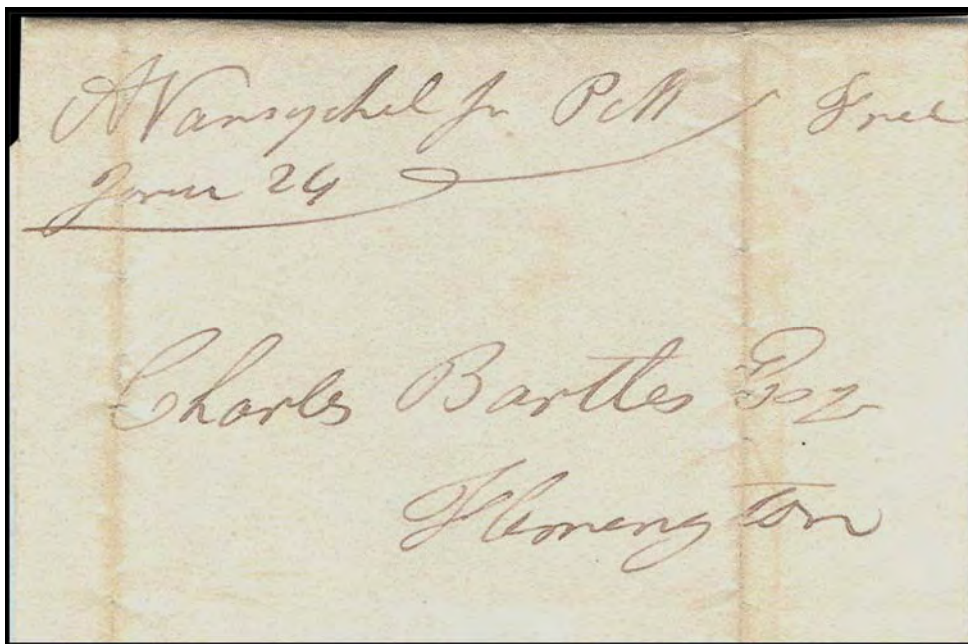 A Vansyckel Jr PM Free
June 24
Charles Bartles Esq
Flemington